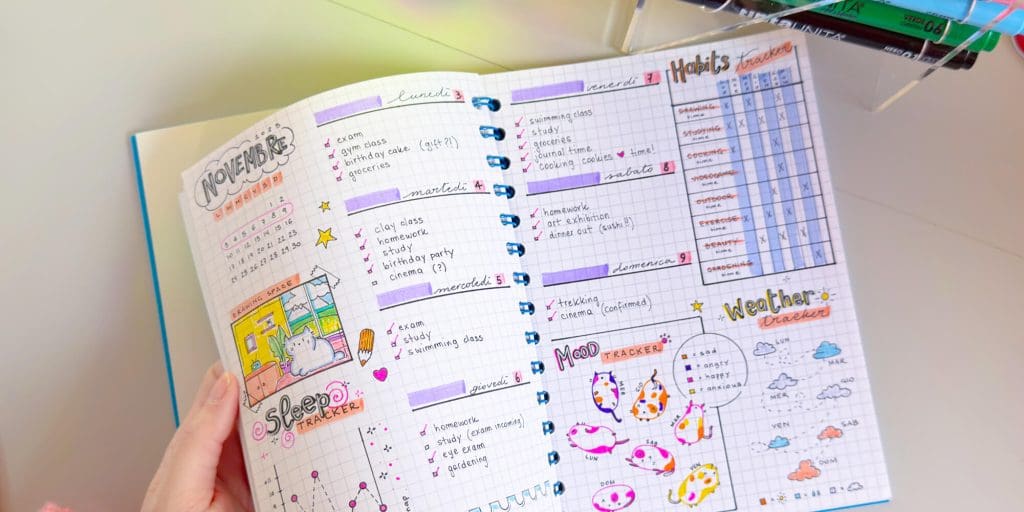 NOVEMBRE
2025
L M M G V S D
1 2
3 4 5 6 7 8 9
10 11 12 13 14 15 16
17 18 19 20 21 22 23
24 25 26 27 28 29 30
DRAWING SPACE
Sleep
TRACKER
lunedì 3
exam
gym class
birthday cake (gift?!)
groceries
martedì 4
clay class
homework
study
birthday party
cinema (?)
mercoledì 5
exam
study
swimming class
giovedì 6
homework
study (exam incoming)
eye exam
gardening
venerdì 7
swimming class
study
groceries
journal time
cooking cookies ♥ time!
sabato 8
homework
art exhibition
dinner out (sushi!!)
domenica 9
trekking
cinema (confirmed)
MOOD TRACKER
= sad
= angry
= happy
= anxious
MER
GIO
MAR
LUN
SAB
VEN
DOM
Habits tracker
DRAWING
TIME
STUDYING
TIME
COOKING
TIME
VIDEOGAME
TIME
OUTDOOR
TIME
EXERCISE
TIME
BEAUTY
TIME
GARDENING
TIME
Weather
tracker
LUN
MAR
MER
GIO
VEN
SAB
DOM
UNITA
VERDE 06